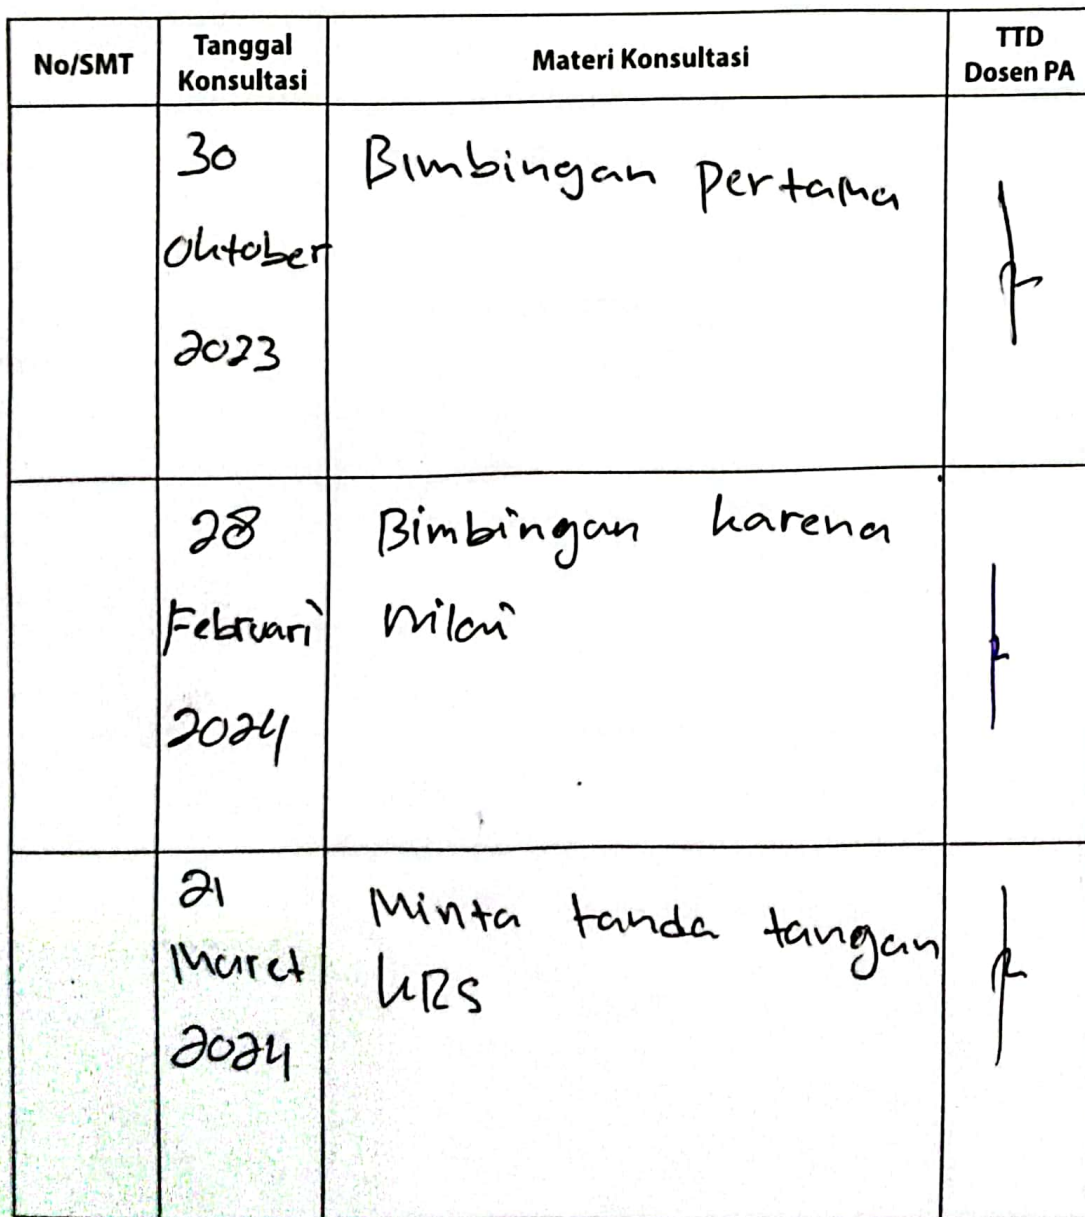 No/SMT
Tanggal
Konsultasi
Materi Konsultasi
TTD
Dosen PA
30
Oktober
2023
Bimbingan Pertama
28
Februari
2024
Bimbingan karena
nilai
21
Maret
2024
Minta tanda tangan
KRS